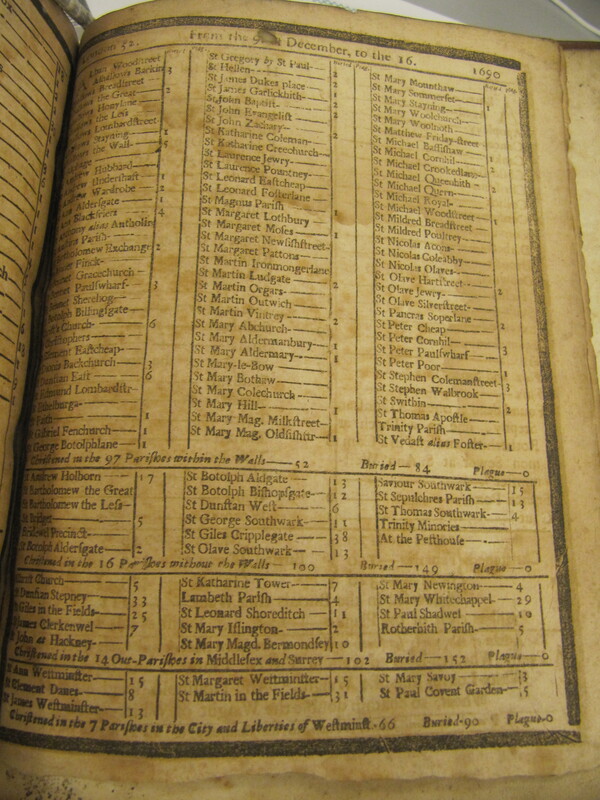 London 52. From the 9 of December, to the 16. 1690
Woodstreet
Barkin 3
Breadstreet
the Great 2
Honylane
the Less
Lombardstreet
Stayning 1
the Wall 5
Hubbard
Undershaft 1
Wardrobe 2
Aldersgate 1
Blackfriers 4
alias Antholins
Parish
Exchange 2
Finck
Gracechurch
Paulswharf 3
Sherehog
Botolph Billingsgate
Church 6
Eastcheap
Backchurch 3
Dunstan East 6
Edmund Lombardstr
Ethelburga
Faith 1
Gabriel Fenchurch 1
George Botolphlane 1
St Gregory by St Paul
St Hellen 2
St James Dukes place 2
St James Garlickhith
St John Baptist 2
St John Evangelist
St John Zachary
St Katharine Coleman
St Katharine Creechurch
St Laurence Jewry
St Laurence Pountney
St Leonard Eastcheap
St Leonard Fosterlane
St Magnus Parish
St Margaret Lothbury
St Margaret Moses 1
St Margaret Newfishstreet
St Margaret Pattons
St Martin Ironmongerlane
St Martin Ludgate 2
St Martin Orgars
St Martin Outwich
St Martin Vintrey 2
St Mary Abchurch
St Mary Aldermanbury 1
St Mary Aldermary 1
St Mary-le-Bow
St Mary Bothaw
St Mary Colechurch
St Mary Hill
St Mary Mag. Milkstreet 1
St Mary Mag. Oldfishstr 1
St Mary Mounthaw
St Mary Sommerset
St Mary Stayning 1
St Mary Woolchurch
St Mary Woolnoth
St Matthew Friday-street
St Michael Bassishaw
St Michael Cornhil
St Michael Crookedlane 2
St Michael Queenhith
St Michael Quern
St Michael Royal
St Michael Woodstreet
St Mildred Breadstreet 1
St Mildred Poultrey
St Nicolas Acons
St Nicolas Coleabby
St Nicolas Olaves
St Olave Hartstreet
St Olave Jewry 2
St Olave Silverstreet
St Pancras Soperlane
St Peter Cheap 2
St Peter Cornhil
St Peter Paulswharf 3
St Peter Poor
St Stephen Colemanstreet 3
St Stephen Walbrook
St Swithin
St Thomas Apostle 2
Trinity Parish
St Vedast alias Foster 1
Christened in the 97 Parishes within the Walls 52 Buried 84 Plague 0
Andrew Holborn 17
Bartholomew the Great
Bartholomew the Less
Bridget 5
Bridewel Precinct
St Botolph Aldersgate 2
St Botolph Aldgate 13
St Botolph Bishopsgate 12
St Dunstan West 6
St George Southwark 11
St Giles Cripplegate 38
St Olave Southwark 13
Saviour Southwark 15
St Sepulchres Parish 13
St Thomas Southwark 4
Trinity Minories
At the Pesthouse
Christened in the 16 Parishes without the Walls 100 Buried 149 Plague 0
Christ Church 5
St Dunstan Stepney 33
Giles in the Fields 25
James Clerkenwel 7
John at Hackney
St Katharine Tower 7
Lambeth Parish 4
St Leonard Shoreditch 11
St Mary Islington 2
St Mary Magd. Bermondsey 10
St Mary Newington 4
St Mary Whitechappel 29
St Paul Shadwel 10
Rotherhith Parish 5
Christened in the 14 Out-Parishes in Middlesex and Surrey 102 Buried 152 Plague 0
St Ann Westminster 15
St Clement Danes 8
St James Westminster 13
St Margaret Westminster 15
St Martin in the Fields 31
St Mary Savoy 3
St Paul Covent Garden 5
Christened in the 7 Parishes in the City and Liberties of Westminst. 66 Buried 90 Plague 0